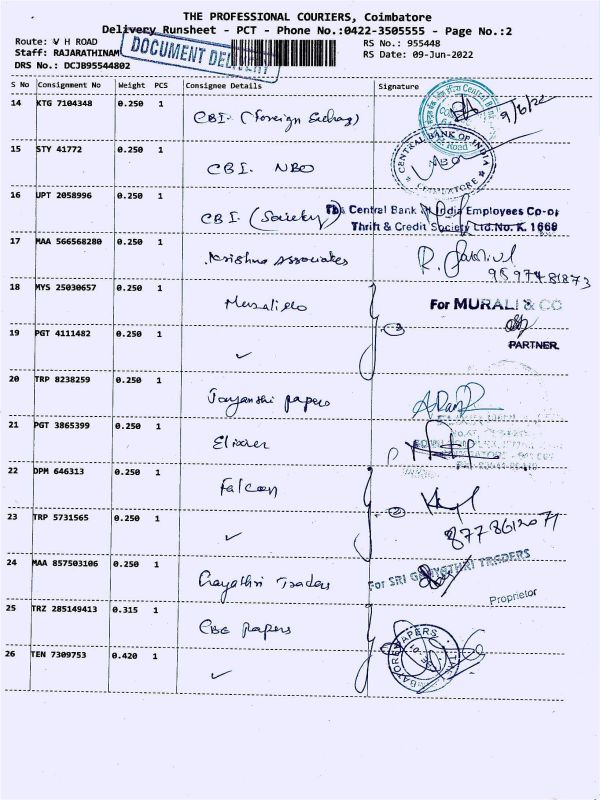 THE PROFESSIONAL COURIERS, Coimbatore
Delivery Runsheet - PCT - Phone No.:0422-3505555 - Page No.:2
Route: V H ROAD
RS No.: 955448
Staff: RAJARATHINAM
RS Date: 09-Jun-2022
DRS No.: DCJB95544802
DOCUMENT
S No Consignment No Weight PCS Consignee Details Signature
14 KTG 7104348 0.250 1 CBI. (foreign 9/6/22
15 STY 41772 0.250 1 CBI. NBO CENTRAL BANK OF INDIA NBO COIMBATORE
16 UPT 2058996 0.250 1 CBI (Society) The Central Bank of India Employees Co-op
Thrift & Credit Society Ltd No. K. 1669
17 MAA 566568280 0.250 1 Krishna Associates R.
9597481873
18 MYS 25030657 0.250 1 Murali &co For MURALI & CO
PARTNER.
19 PGT 4111482 0.250 1 ✓ 2
20 TRP 8238259 0.250 1 papers
21 PGT 3865399 0.250 1 Elixer
22 DPM 646313 0.250 1 Falcon
23 TRP 5731565 0.250 1 ✓ 2
24 MAA 857503106 0.250 1 Gayathri Traders For SRI GAYATHRI TRADERS
Proprietor
25 TRZ 285149413 0.315 1 CBE papers
26 TEN 7309753 0.420 1 ✓